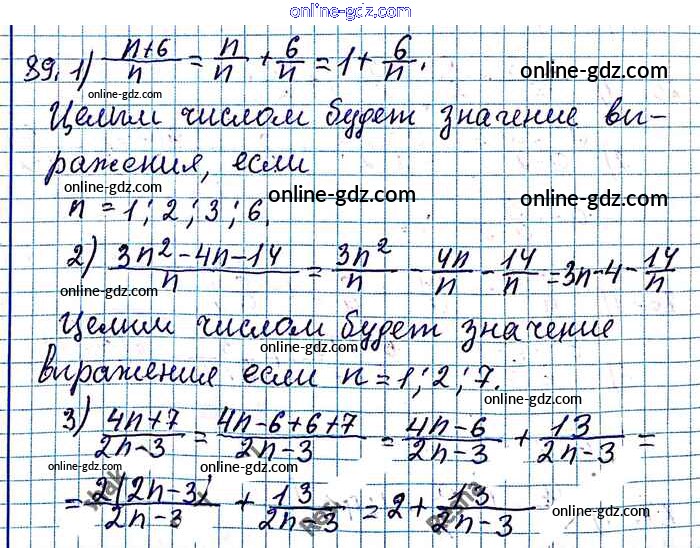 online-gdz.com
89. 1) (n+6)/n = n/n + 6/n = 1 + 6/n.
online-gdz.com online-gdz.com online-gdz.com
Целым числом будет значение вы-
ражения, если
online-gdz.com online-gdz.com online-gdz.com
n = 1; 2; 3; 6.
2) (3n²-4n-14)/n = 3n²/n - 4n/n - 14/n = 3n-4-14/n
online-gdz.com online-gdz.com online-gdz.com
Целым числом будет значение
online-gdz.com online-gdz.com
выражения если n = 1; 2; 7.
online-gdz.com
3) (4n+7)/(2n-3) = (4n-6+6+7)/(2n-3) = (4n-6)/(2n-3) + 13/(2n-3) =
online-gdz.com online-gdz.com online-gdz.com
= 2(2n-3)/(2n-3) + 13/(2n-3) = 2 + 13/(2n-3)
online-gdz.com